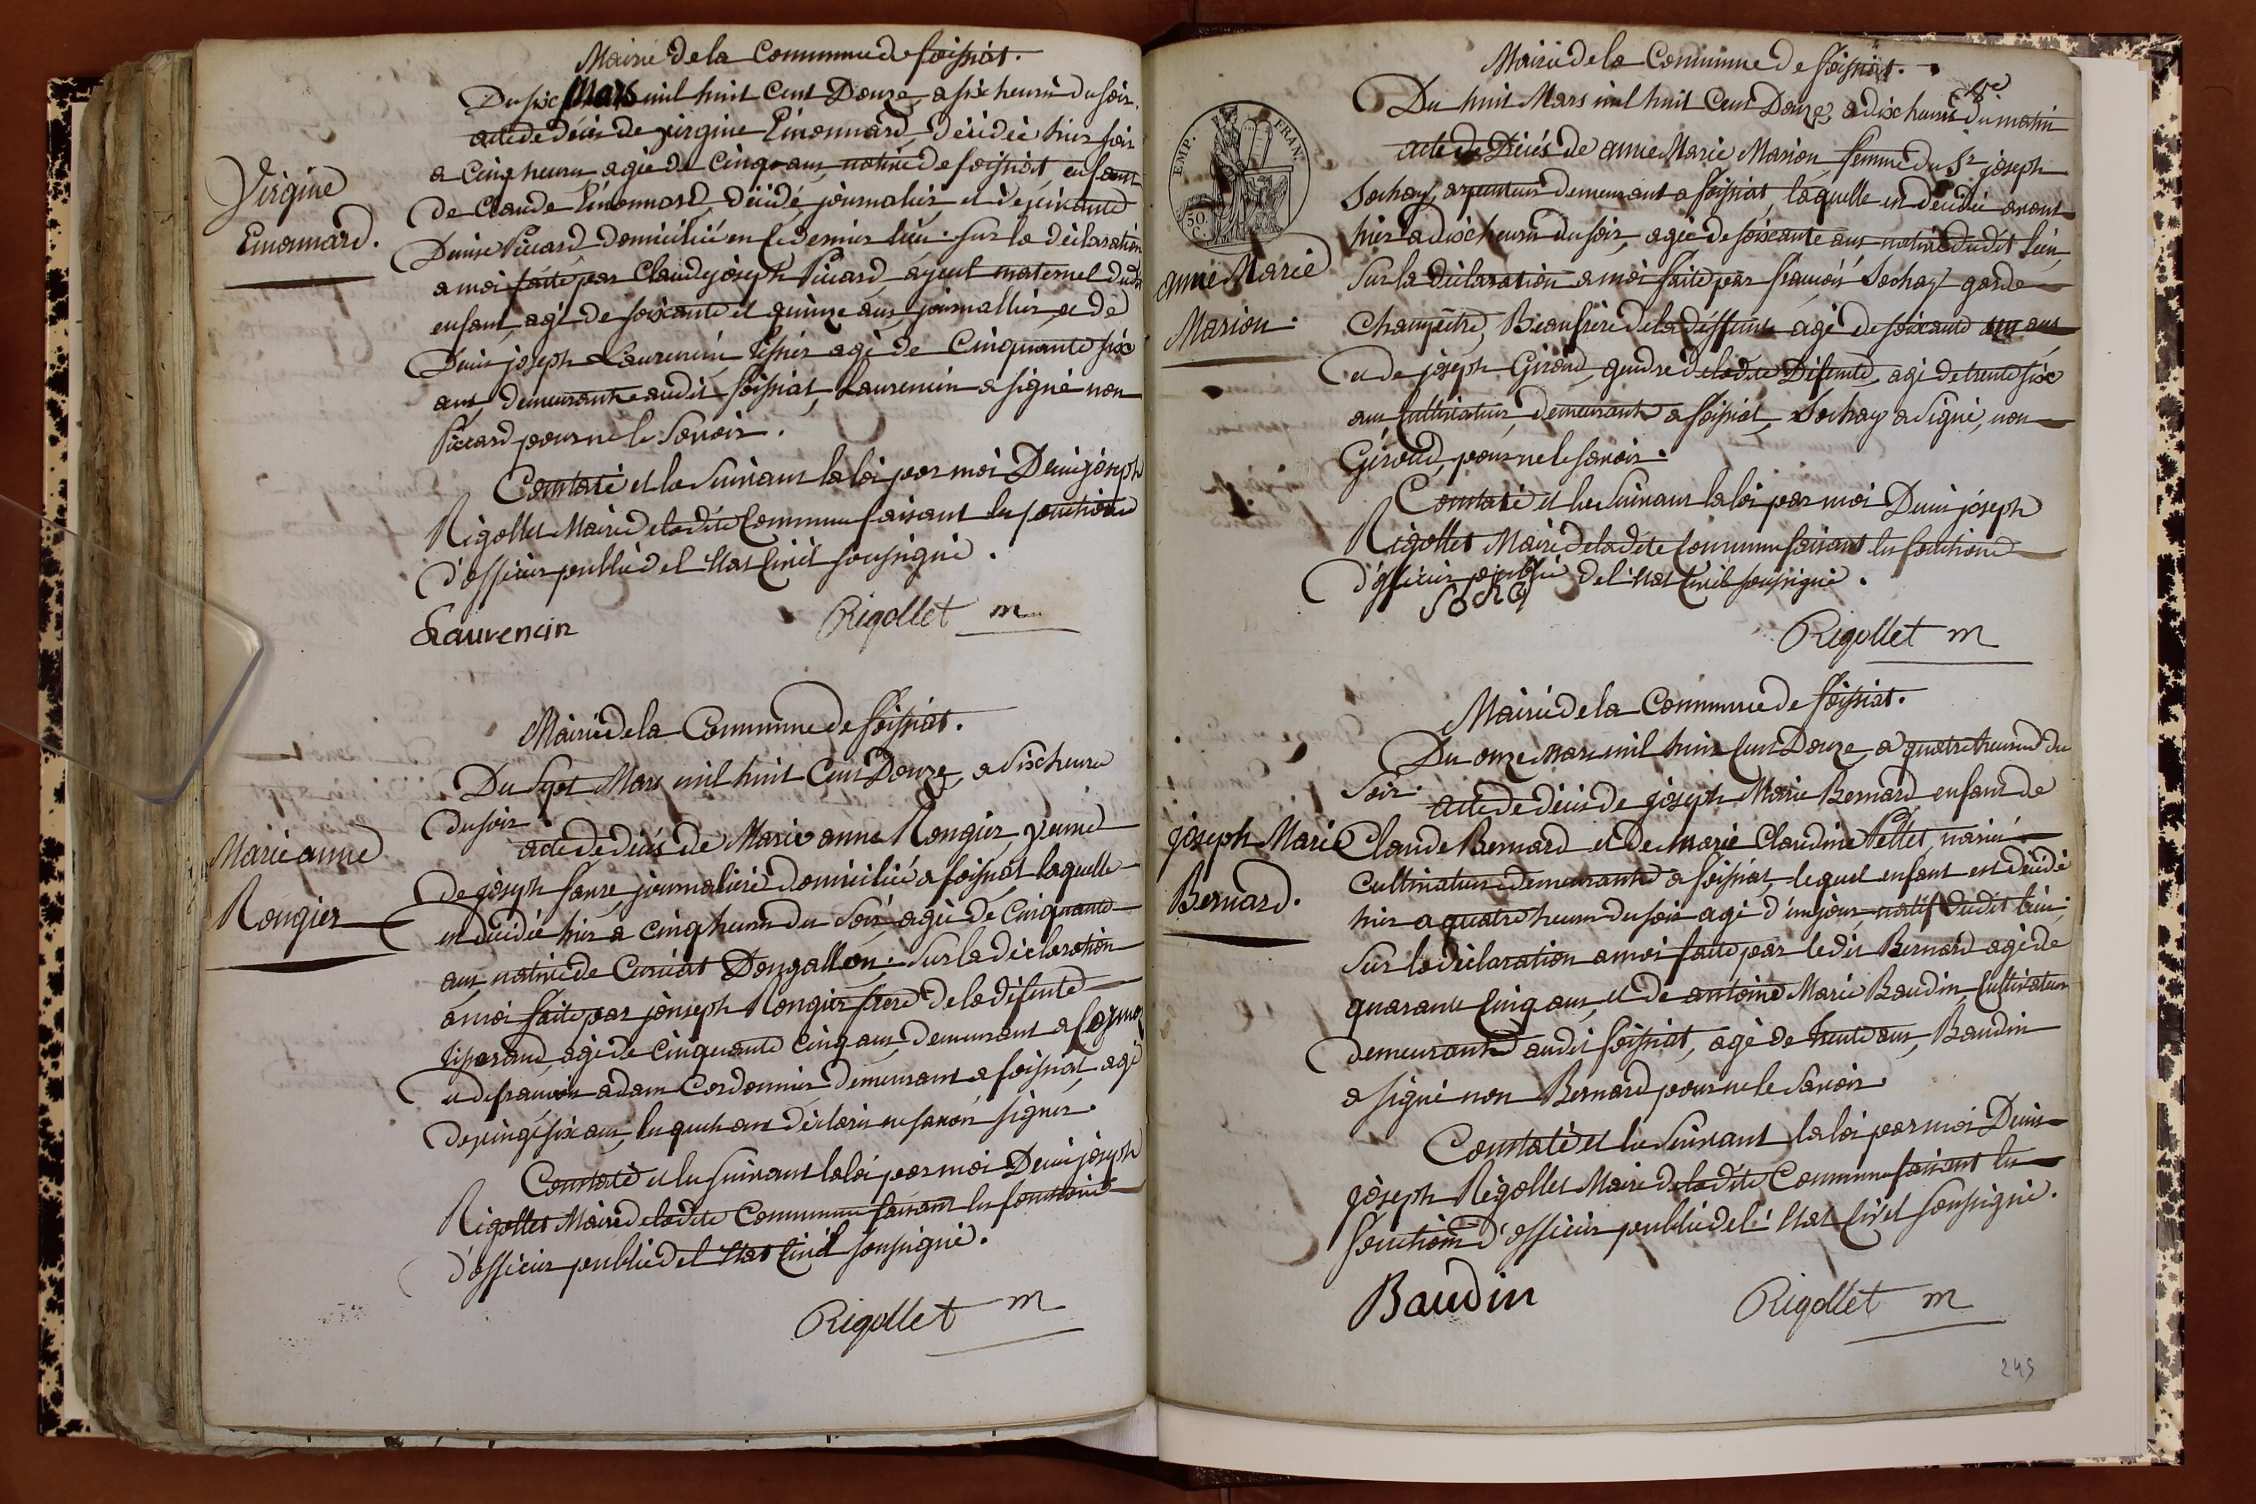 Mairie de la Commune de foissiat.
Du six Mars mil huit Cent Douze, a six heures du soir,
acte de décès de virgine Emonnard, décédée hier soir
a Cinq heures agée de Cinq ans, native de foissiat, enfant
de Claude Emonnard, décédé, journalier, et de vivante
Denise Piccard domiciliée en ce dernier lieu. Sur la déclaration
a moi faite par Claude joseph Piccard, ayeul maternel dudit
enfant, agé de soixante et quinze ans, journallier, et de
Denis joseph Laurencin tissier agé de Cinquante six
ans, demeurants audit foissiat, Laurencin a signé non
Piccard pour ne le Savoir.
Constaté et lu Suivant la loi par moi Denis joseph
Rigollet Maire de ladite Commune faisant les fonctions
d'officier public de l'Etat Civil soussigné.
Laurencin
Rigollet m
Virgine
Emonnard.
Mairie de la Commune de foissiat.
Du Sept Mars mil huit Cent Douze, a six heures
du soir
acte de décès de Marie anne Rongier, veuve
de joseph faure, journaliere domiciliée a foissiat laquelle
est décédée hier a cinq heures du Soir, agée de Cinquante
ans, native de Curciat Dongallon; Sur la déclaration
a moi faite par joseph Rongier frere de la défunte
tisserand, agé de Cinquante cinq ans, demeurant a
et de francois adam Cordonnier demeurant a foissiat, agé
de vingt six ans, lesquels ont déclaré ne savoir signer.
Constaté et lu suivant la loi par moi Denis joseph
Rigollet Maire de ladite Commune faisant les fonctions
d'officier public de l'Etat Civil soussigné.
Rigollet m
Marie anne
Rongier
Mairie de la Commune de foissiat.
Du huit Mars mil huit Cent Douze, a dix heures du matin
acte de Décès de anne Marie Marion, femme du Sr joseph
Sochay, arpenteur demeurant a foissiat, laquelle est décédée avant
hier a dix heures du soir, agée de soixante ans, native dudit lieu,
Sur la déclaration a moi faite par francois Sochay garde
Champetre, Beaufrere de la déffunte agé de soixante ans
et de joseph Giroud, gendre de ladite Défunte, agé de trente six
ans, Cultivateur, demeurants a foissiat, Sochay a Signé, non
Giroud, pour ne le savoir.
Constaté et lu Suivant la loi par moi Denis joseph
Rigollet Maire de ladite Commune faisant les fonctions
d'officier public de l'Etat Civil soussigné.
Rigollet m
EMP. FRAN.
50.
C.
anne Marie
Marion.
Mairie de la Commune de foissiat.
Du onze Mars mil huit Cent Douze, a quatre heures du
Soir.
acte de décès de joseph Marie Bernard enfant de
Claude Bernard et de Marie Claudine Pellet, mariés
Cultivateurs demeurants a foissiat, lequel enfant est décédé
hier a quatre heures du soir agé d'un jour natif dudit lieu;
Sur la déclaration a moi faite par le dit Bernard agé de
quarante Cinq ans, et de antoine Marie Baudin, Cultivateur
demeurants audit foissiat, agé de trente ans, Baudin
a signé non Bernard pour ne le Savoir
Constaté et lu Suivant la loi par moi Denis
joseph Rigollet Maire de ladite Commune faisant les
fonctions d'officier public de l'Etat Civil soussigné.
Baudin
Rigollet m
joseph Marie
Bernard.
245